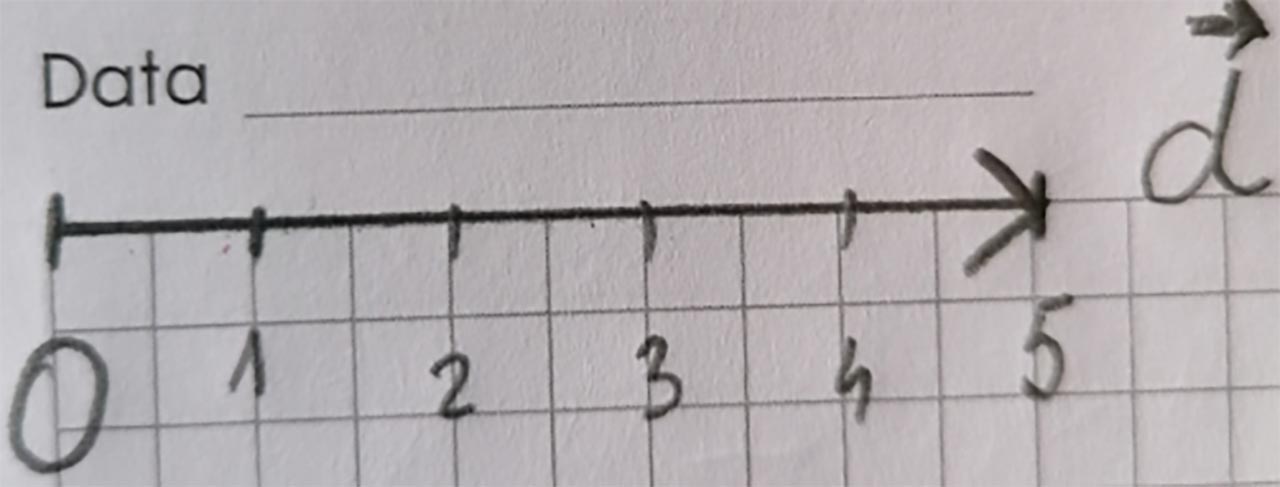 Data
d⃗
0 1 2 3 4 5